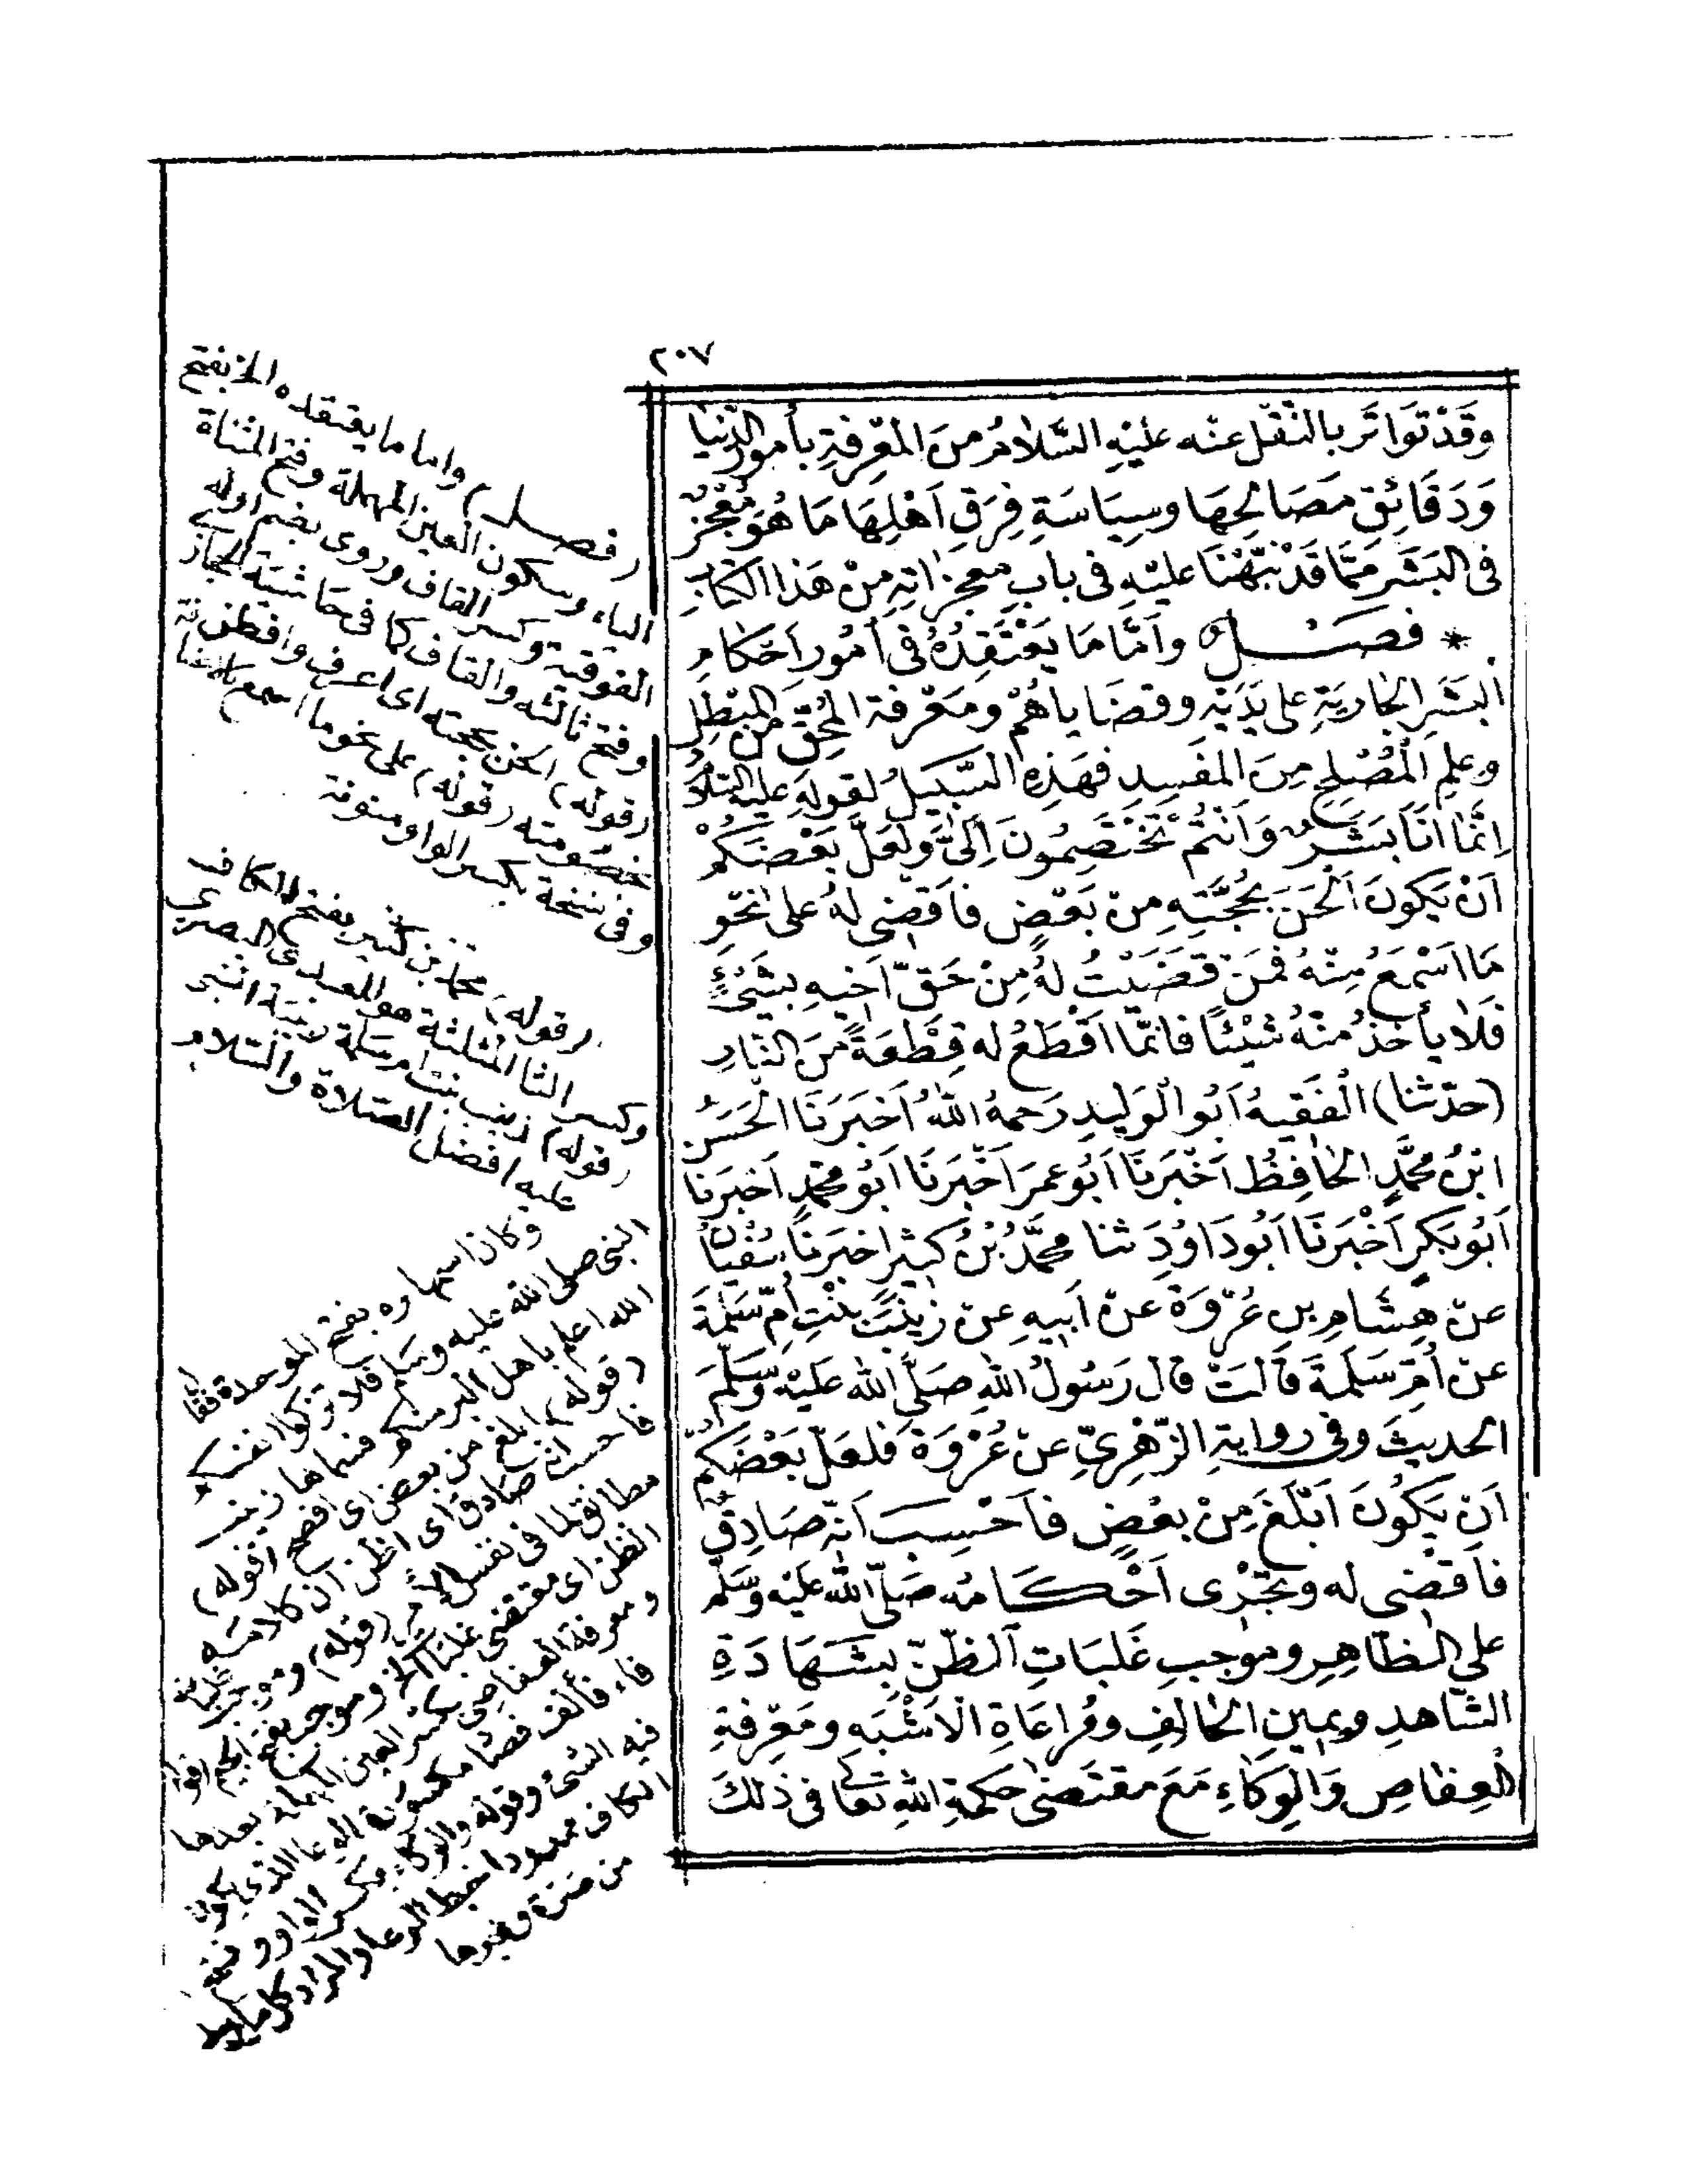 ٢٠٧
وَقَدْ تَوَاتَرَ بِالنَّقْلِ عَنْهُ عَلَيْهِ السَّلَامُ مِنَ المَعْرِفَةِ بِأُمُورِ الدُّنْيَا
وَدَقَائِقِ مَصَالِحِهَا وَسِيَاسَةِ فِرَقِ أَهْلِهَا مَا هُوَ مُعْجِزٌ
فِى البَشَرِ مِمَّا قَدْ نَبَّهْنَا عَلَيْهِ فِى بَابِ مُعْجِزَاتِهِ مِنْ هَذَا الكِتَابِ
* فصل وَأَمَّا مَا يَعْتَقِدُهُ فِى أُمُورِ أَحْكَامِ
البَشَرِ الجَارِيَةِ عَلَى يَدَيْهِ وَقَضَايَاهُمْ وَمَعْرِفَةِ المُحِقِّ مِنَ المُبْطِلِ
وَعِلْمِ المُصْلِحِ مِنَ المُفْسِدِ فَهَذِهِ السَّبِيلُ لِقَوْلِهِ عَلَيْهِ السَّلَامُ
إِنَّمَا أَنَا بَشَرٌ وَأَنْتُمْ تَخْتَصِمُونَ إِلَىَّ وَلَعَلَّ بَعْضَكُمْ
أَنْ يَكُونَ أَلْحَنَ بِحُجَّتِهِ مِنْ بَعْضٍ فَأَقْضِى لَهُ عَلَى نَحْوِ
مَا أَسْمَعُ مِنْهُ فَمَنْ قَضَيْتُ لَهُ مِنْ حَقِّ أَخِيهِ بِشَىْءٍ
فَلَا يَأْخُذْ مِنْهُ شَيْئًا فَإِنَّمَا أَقْطَعُ لَهُ قِطْعَةً مِنَ النَّارِ
(حدّثنا) الْفَقِيهُ أَبُو الْوَلِيدِ رَحِمَهُ اللهُ أَخْبَرَنَا الْحُسَيْنُ
ابْنُ مُحَمَّدٍ الحَافِظُ أَخْبَرَنَا أَبُو عُمَرَ أَخْبَرَنَا أَبُو مُحَمَّدٍ أَخْبَرَنَا
أَبُو بَكْرٍ أَخْبَرَنَا أَبُو دَاوُدَ ثنا مُحَمَّدُ بْنُ كَثِيرٍ أَخْبَرَنَا سُفْيَانُ
عَنْ هِشَامِ بْنِ عُرْوَةَ عَنْ أَبِيهِ عَنْ زَيْنَبَ بِنْتِ أُمِّ سَلَمَةَ
عَنْ أُمِّ سَلَمَةَ قَالَتْ قَالَ رَسُولُ اللهِ صَلَّى اللهُ عَلَيْهِ وَسَلَّمَ
الحديثَ وَفِى رِوَايَةِ الزُّهْرِيِّ عَنْ عُرْوَةَ فَلَعَلَّ بَعْضَكُمْ
أَنْ يَكُونَ أَبْلَغَ مِنْ بَعْضٍ فَأَحْسِبَ أَنَّهُ صَادِقٌ
فَأَقْضِى لَهُ وَتَجْرِى أَحْكَامُهُ صَلَّى اللهُ عَلَيْهِ وَسَلَّم
عَلَى الظَّاهِرِ وَمُوجَبِ غَلَبَاتِ الظَّنِّ بِشَهَادَةِ
الشَّاهِدِ وَيَمِينِ الحَالِفِ وَمُرَاعَاةِ الأَشْبَهِ وَمَعْرِفَةِ
العِفَاصِ وَالْوِكَاءِ مَعَ مُقْتَضَى حِكْمَةِ اللهِ تَعَالَى فِى ذَلِكَ
(فصل) واما ما يعتقده الخ بفتح
الياء وسكون العين المهملة وفتح المثناة
الفوقية وكسر القاف وروى بضم اوله
وفتح ثالثه والقاف كما فى حاشية الحجازى
(قوله) الحن بحجته اى اعرف وافطن
(قوله) على نحو ما اسمع
وفى نسخة بكسر الواو منونة
(قوله) محمد بن كثير بفتح الكاف
وكسر الثا المثلثة هو العبدى البصرى
(قوله) زينب بنت ام سلمة ربيبة النبى
عليه افضل الصلاة والسلام
وكان اسمها بره بفتح الموحدة فقال
النبى صلى الله عليه وسلم فلا تزكوا انفسكم
الله اعلم باهل البر منكم فسماها زينب
(قوله) ابلغ من بعض اى افصح (قوله)
فاحسب انه صادق اى اظن ان كلامه
مطابق لما فى نفس الامر (قوله) وموجب غلبات
الظن اى مقتضى غلبة الخ وموجب بفتح الجيم (قوله)
ومعرفة العفاص بكسر العين المهملة بعدها
فاء فألف فصاد مكسورة الوعا الذى يكون
فيه الشئ وقوله والوكاء بكسر الواو وفتح
الكاف ممدودا خيط الوعا والمراد
من صرة وغيرها